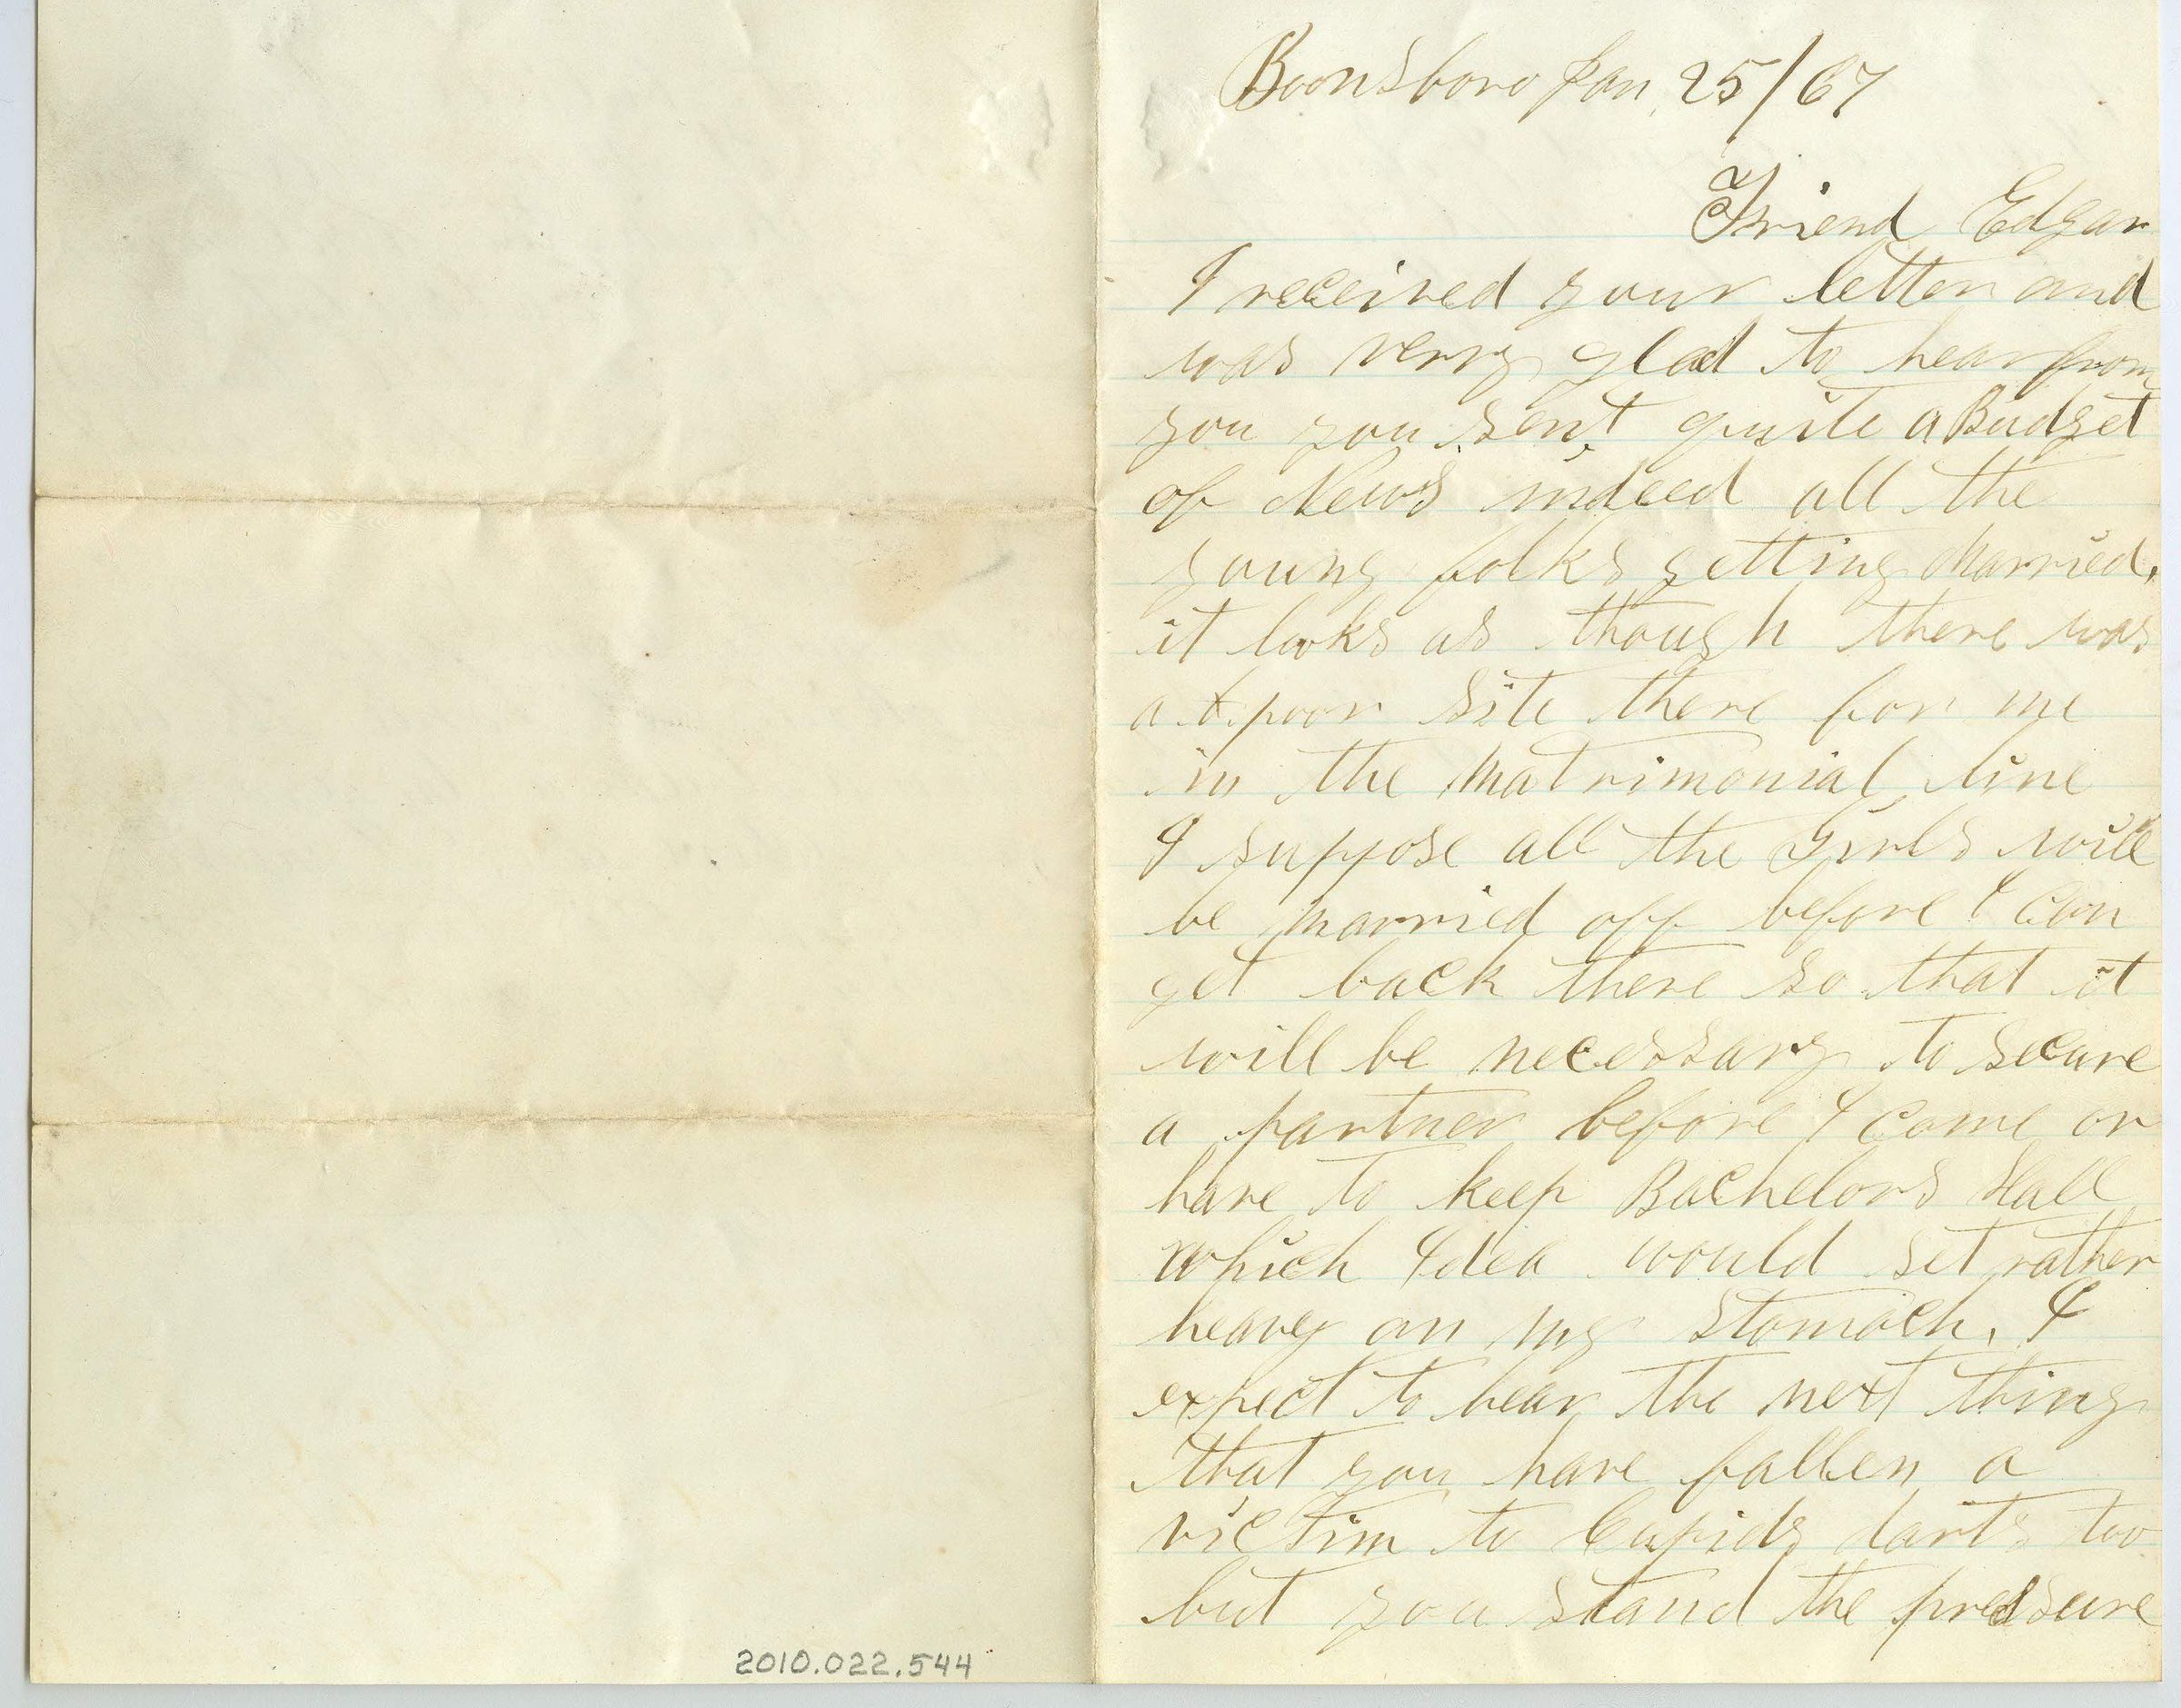 Boonsboro Jan 25/67
Friend Edgar
I received your letter and
was verry glad to hear from
you you sent quite a Budget
of News indeed all the
young folks getting Married,
it looks as though there was
a poor site there for me
in the Matrimonial line
I suppose all the Girls will
be married off before I can
get back there so that it
will be necessary to secure
a partner before I come or
have to keep Bachelors Hall
which Idea would set rather
heavy on my Stomach, I
expect to hear the next thing
that you have fallen a
victim to Cupids darts too
but you stand the pressure
2010.022.544